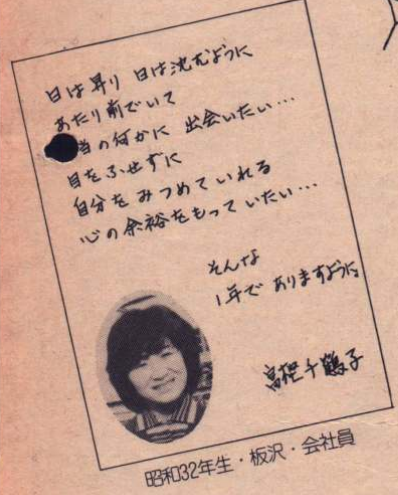 日は昇り 日は沈むように
あたり前でいて
当の何かに 出会いたい…
目をふせずに
自分を みつめていれる
心の余裕をもっていたい…
そんな
1年で ありますように
高樫千鶴子
昭和32年生・板沢・会社員